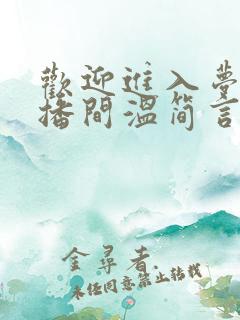 歡迎進入夢
播間溫簡言
金尋者.
未经同意禁止转载